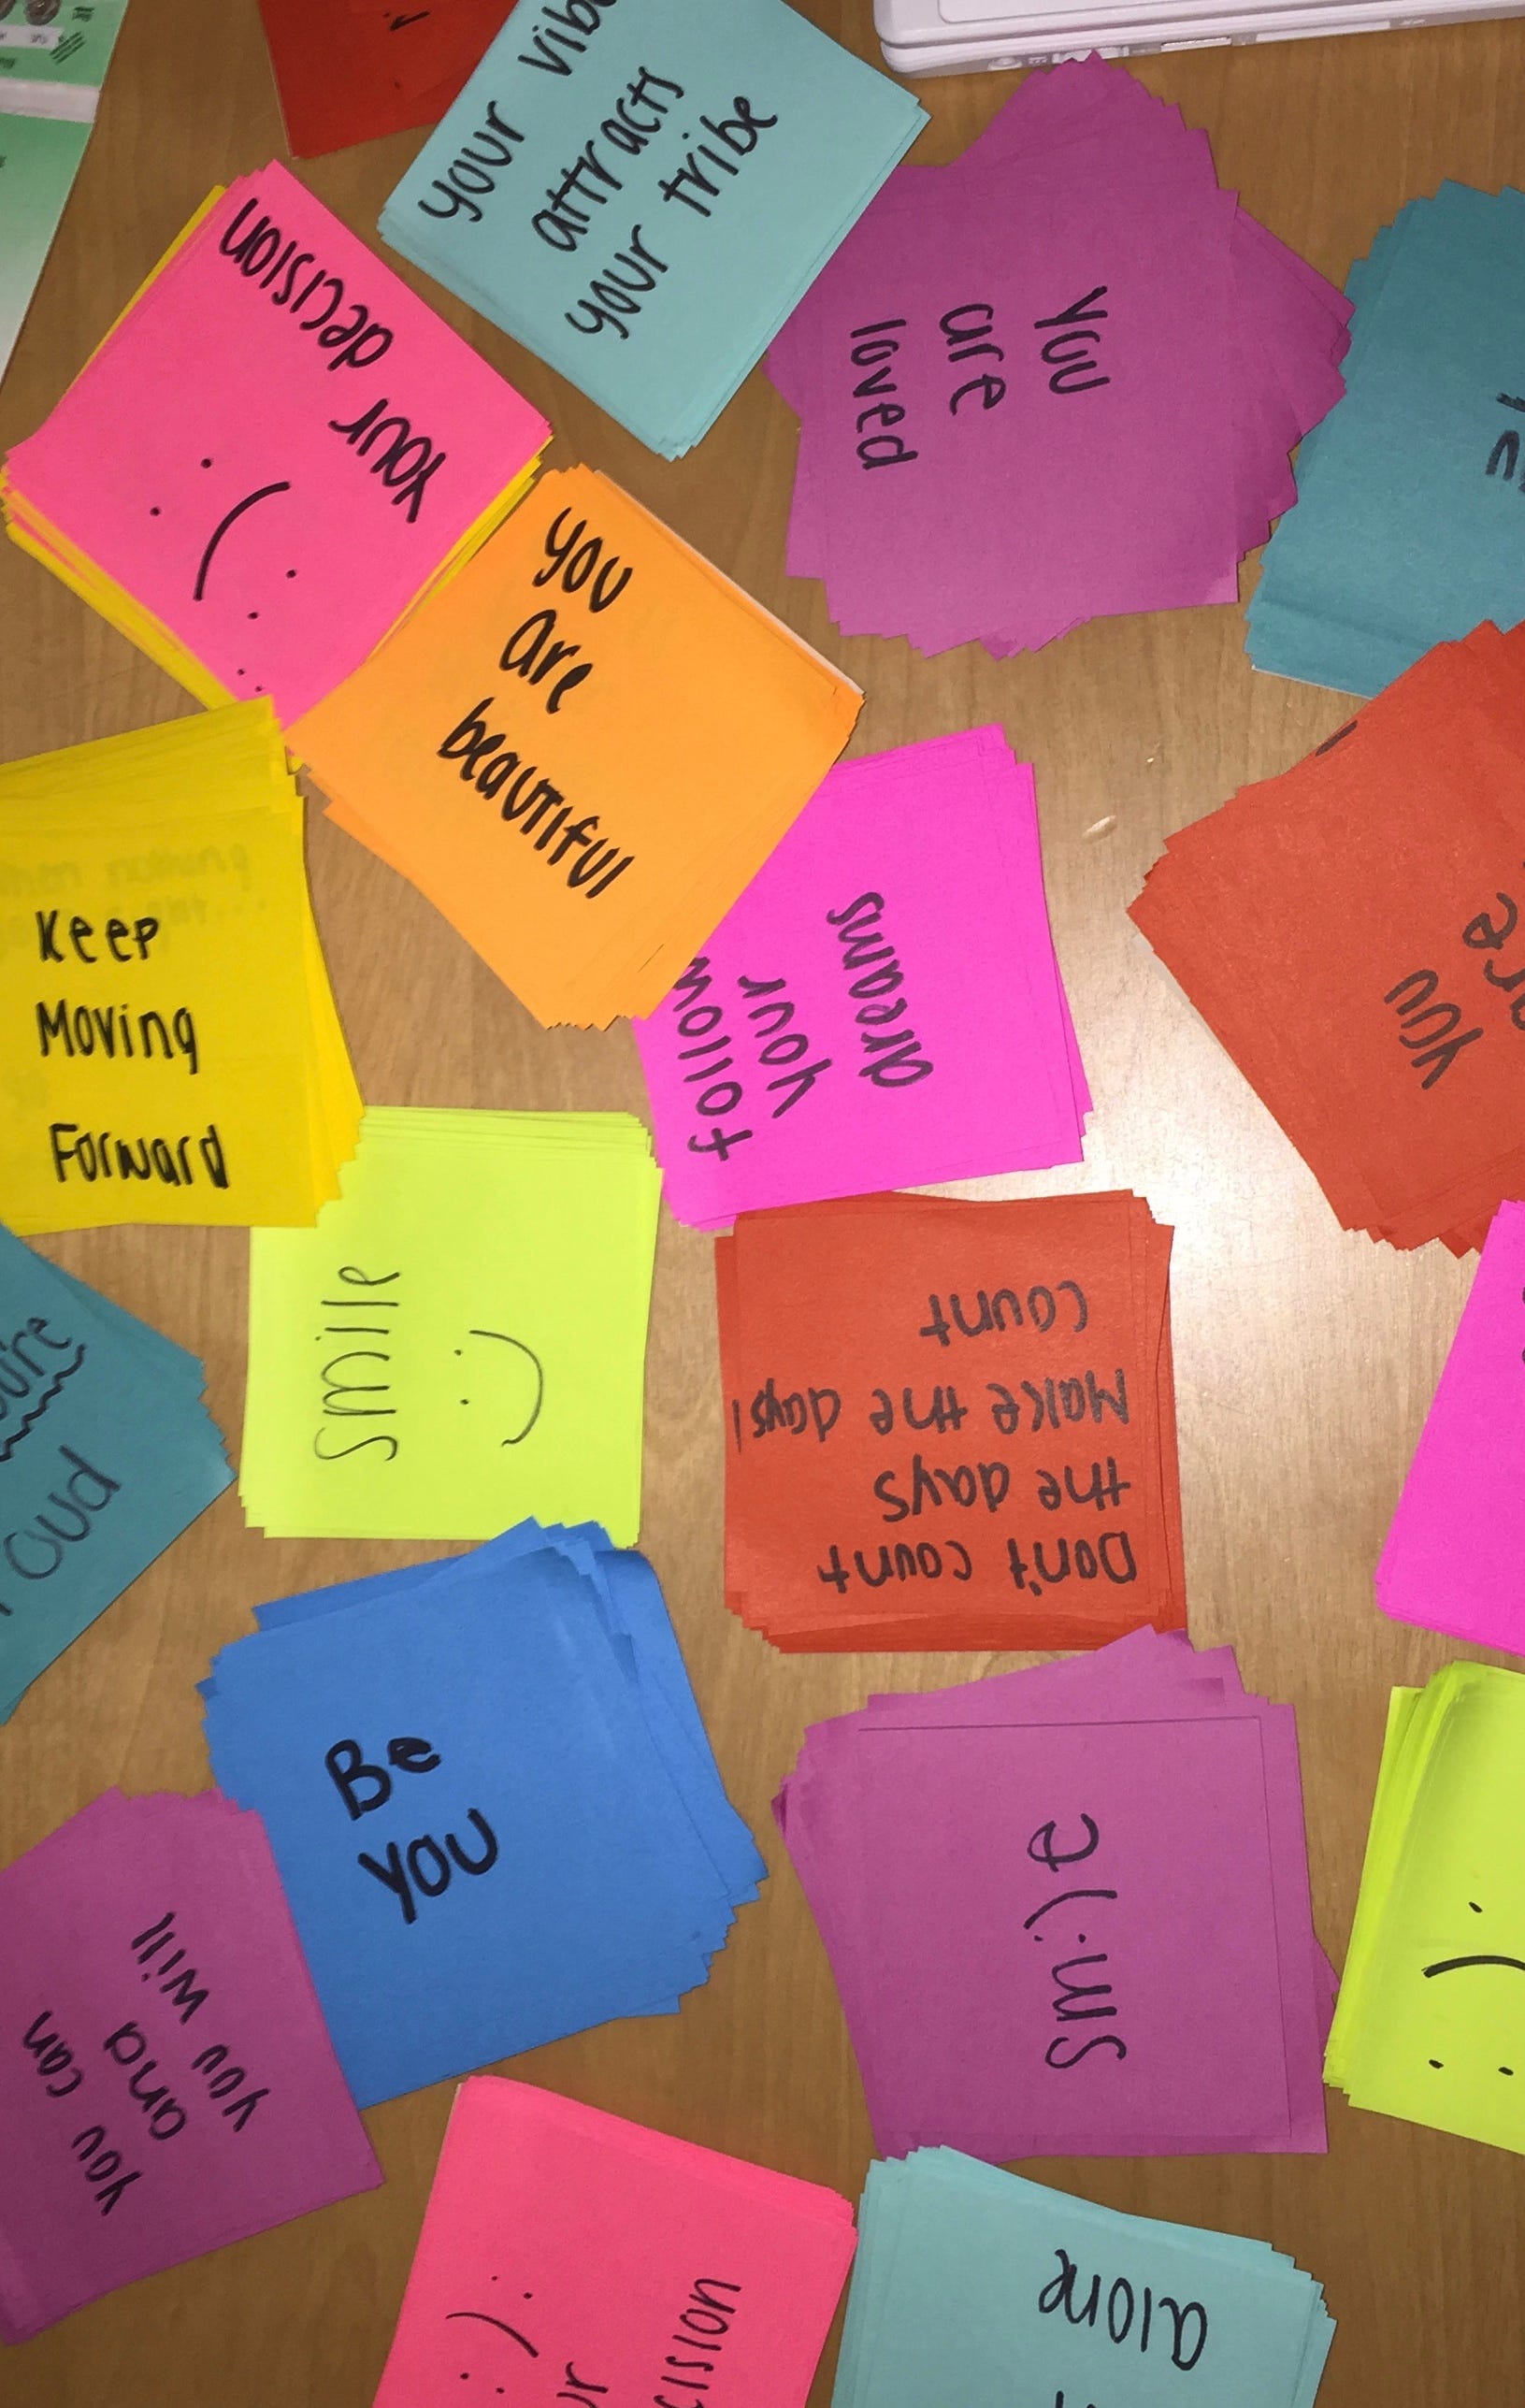 your vibe
attracts
your tribe
Your decision
you
are
loved
you
are
beautiful
Keep
Moving
Forward
follow
your
dreams
you
are
smile
Don't count
the days
Make the days!
count
Be
You
smile
you can
and
you will
alone